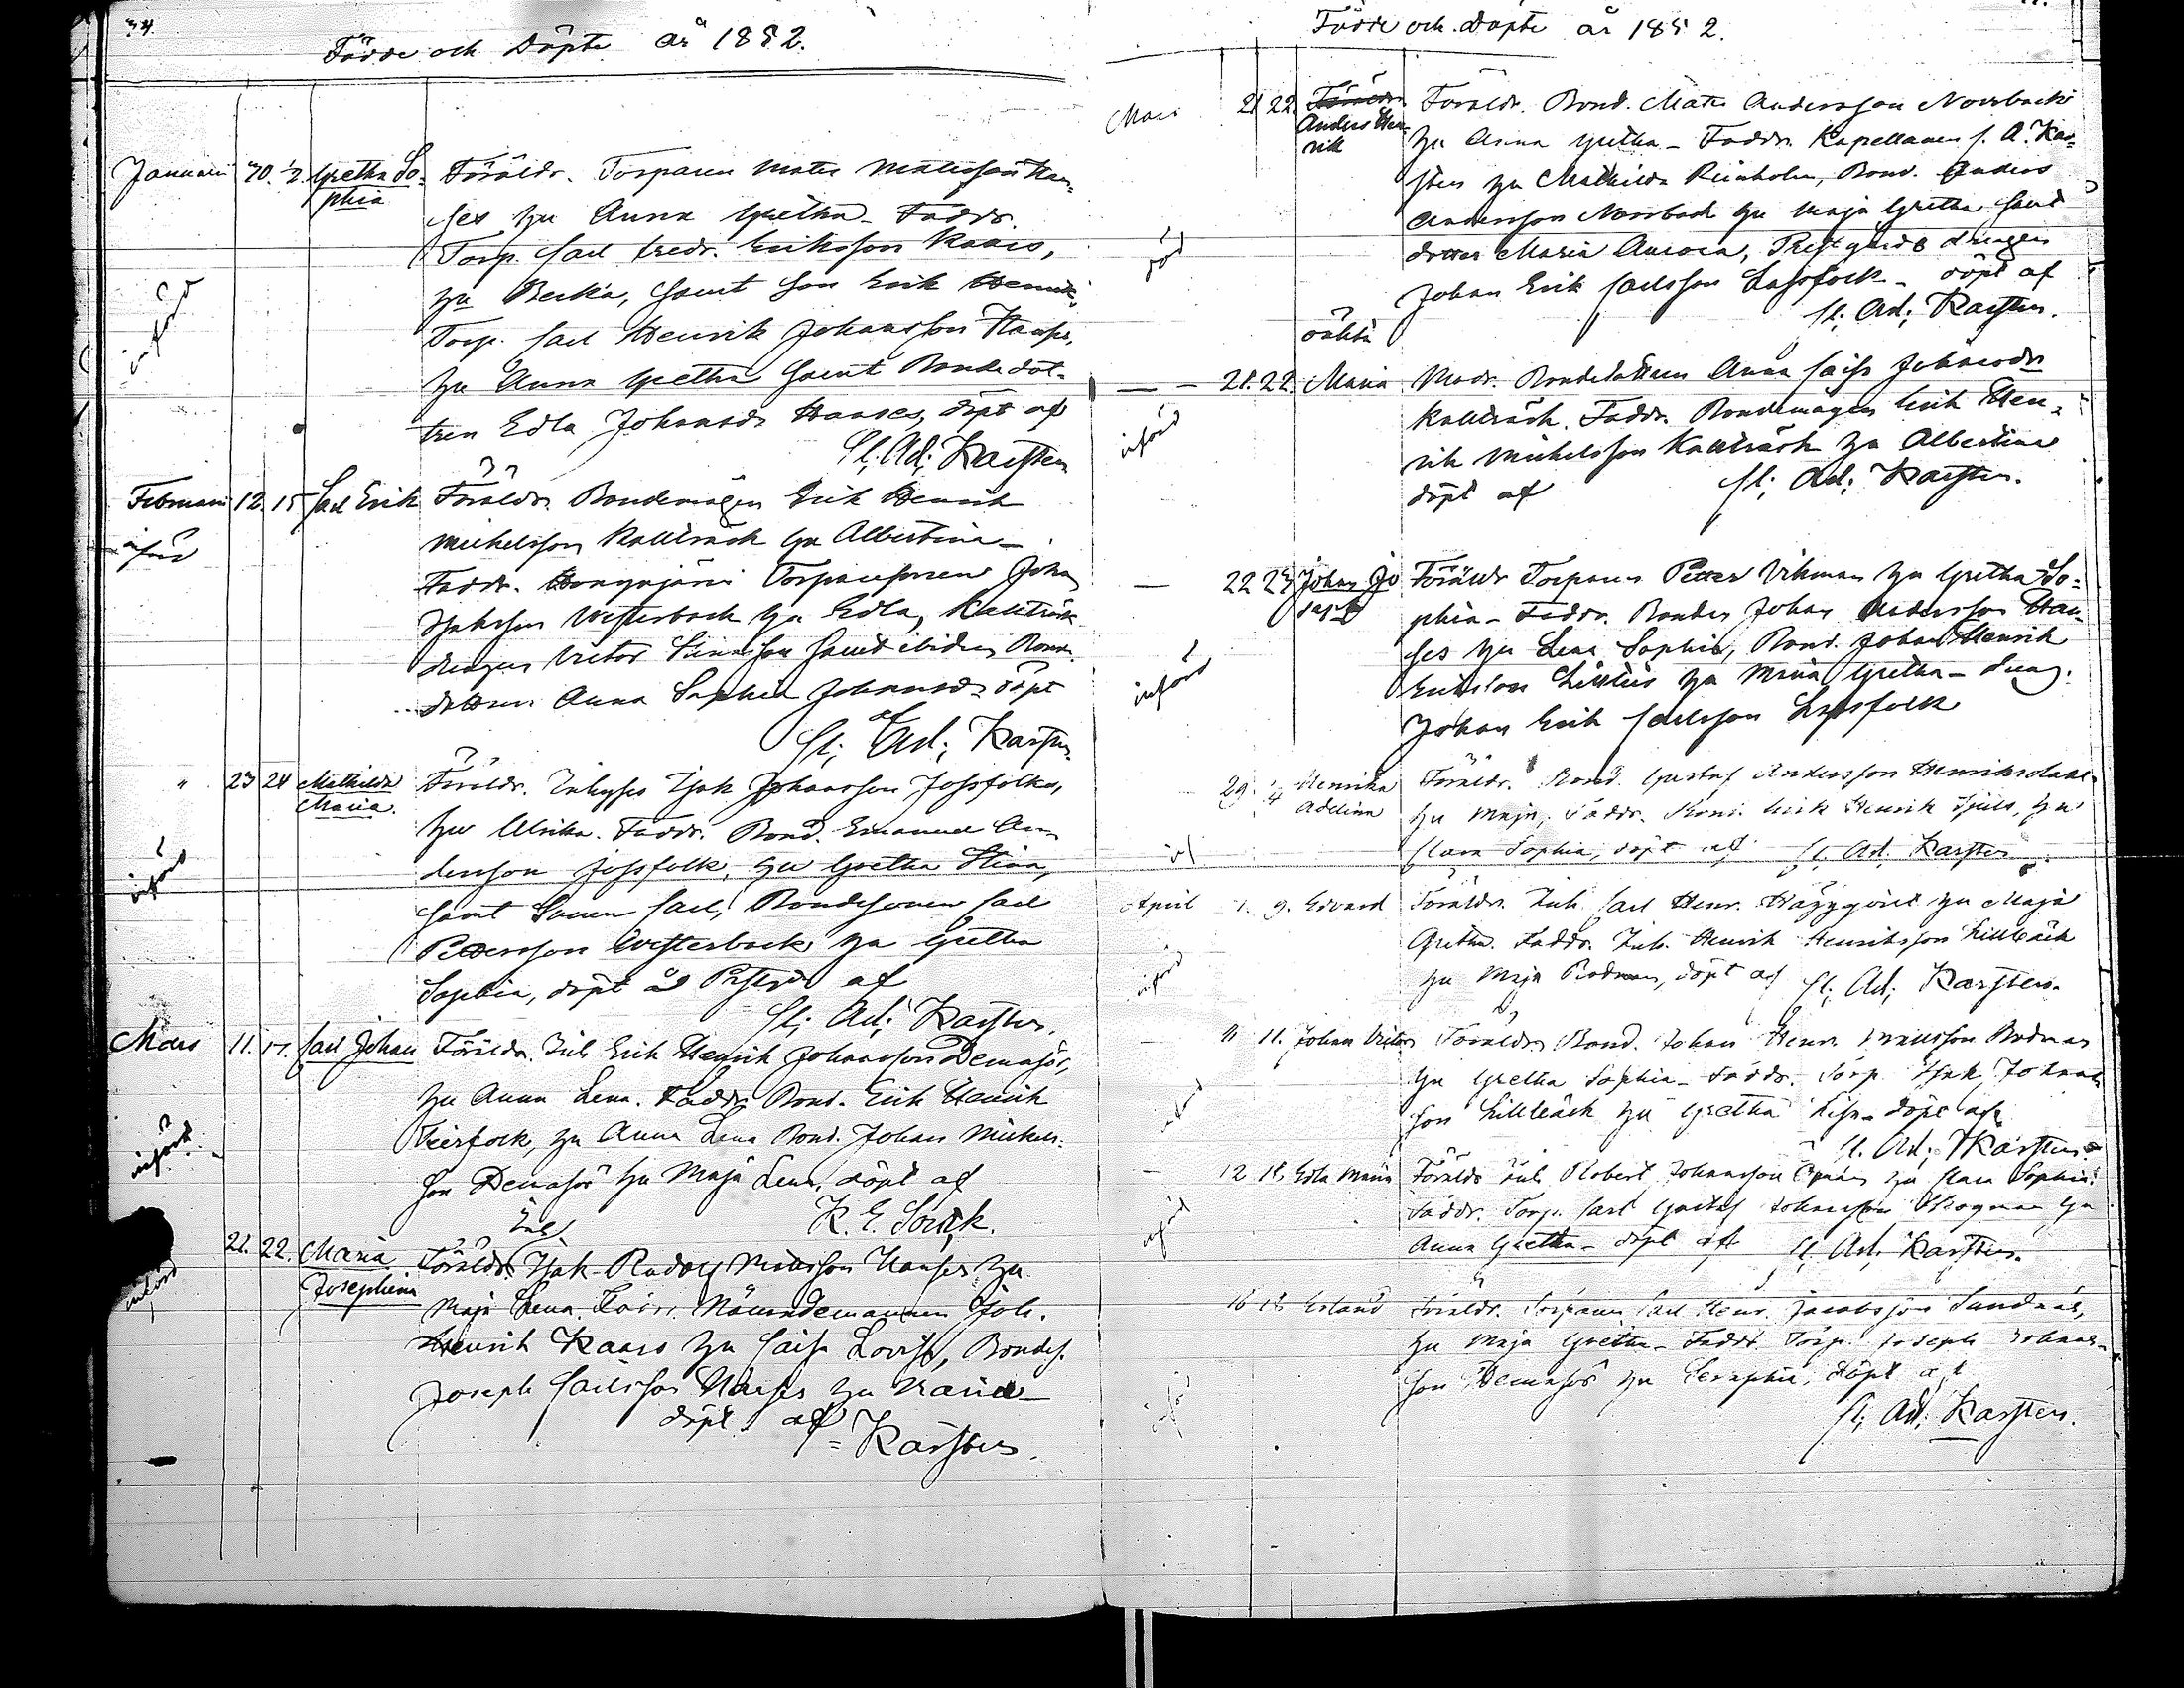 34.
Födde och Döpte år 1852.
Januari 30. 1/2. Gretha So-
phia
Föräldr. Torparen Mats Mattsson Han-
ses hu Anna Gretha. Faddr.
Torp. Carl Fredr. Eriksson Kaars,
hu Becka, samt son Erik Henrik,
Torp. Carl Henrik Johansson Hanses,
hu Anna Gretha samt Bondedot-
tren Edla Johansdr Hanses, döpt af
C. Ad. Karsten
införd
Februari 12. 15 Carl Erik
Föräldr. Bondemågen Erik Henrik
Mickelsson Kallträsk hu Albertina
Faddr. Torparesonen Johan
Isaksson Westerback hu Edla, Kallträsk
drengen Victor samt ibidem Bond.
dottren Anna Sophia Johansdr döpt
af
C. Ad. Karsten
införd
" 23 24 Mathilda
Maria.
Föräldr. Inhyses Isak Johansson Jossfolk,
hu Ulrika. Faddr. Bond. Emanuel An-
dersson Jossfolk, hu Gretha Stina,
samt Sonen Carl, Bondesonen Carl
Pettersson Westerback hu Gretha
Sophia, döpt af
C. Ad. Karsten.
införd
Mars 11. 17. Carl Johan
Föräldr. Inh Erik Henrik Johansson Demasör,
hu Anna Lena. Faddr. Bond. Erik Henrik
Teirfolk, hu Anna Lena Bond. Johan Mickels-
son Demasör hu Maja Lena, döpt af
K. E.
införd
Inh.
21. 22. Maria
Josephina
Föräldr. Isak Rudolf Mattsson Hanses hu
Maja Lena. Nämndemannen Joh.
Henrik Kaars hu Caisa Lovisa, Bondes.
Joseph Carlsson Hanses hu Maria
döpt af
Karsten.
införd
Födde och Döpte år 1852.
Mars 21 22. Anders Hen-
rik
Föräldr. Bond. Mats Andersson Norrback
hu Anna Gretha. Faddr. Kapellanen C. A. Kar-
sten hu Mathilda Reinholm, Bond. Anders
Andersson Norrback hu Maja Gretha samt
dotter Maria Aurora, Prestgårds drengen
Johan Erik Carlsson Lassfolk. döpt af
C. Ad. Karsten.
oäkta
— 21. 22. Maria
Modr. Bondedottren Anna Caisa Johansdr
Kallträsk. Faddr. Bondemågen Erik Hen-
rik Mickelsson Kallträsk hu Albertina
döpt af C. Ad. Karsten.
införd
— 22 23 Johan Jo
seph
Föräldr Torparen Petter Vikman hu Gretha So-
phia. Faddr. Bonden Johan Andersson Han-
ses hu Lena Sophia, Bond. Johan Henrik
Eriksson hu Maria Gretha. Dreng.
Johan Erik Carlsson Lassfolk
införd
29 1/4 Henrika
Adelina
Föräldr. Bond. Gustaf Andersson
hu Maja, Faddr. Erik Henrik hu
Clara Sophia, döpt af C. Ad. Karsten
April 1. 9. Edvard
Föräldr. Inh Carl Henr. Häggqvist hu Maja
Gretha. Faddr. Inh. Henrik Henriksson Lillbäck
hu Maja Rodman, döpt af C. Ad. Karsten.
införd
— 11 11. Johan Victor
Föräldr. Bond. Johan Henr. Mattsson
hu Gretha Sophia. Faddr. Torp. Isak Johans-
son Lillbäck hu Gretha Lisa. döpt af
C. Ad. Karsten.
— 12 18 Edla Maria
Föräldr Inh Robert Johansson hu Clara Sophia.
Faddr. Torp. Carl Gustaf Johansson Skogman hu
Anna Gretha. döpt af C. Ad. Karsten.
införd
16 18 Erland
Föräldr. Torparen Carl Henr. Jacobsson Sundnäs,
hu Maja Gretha. Faddr. Torp. Joseph Johans-
son Demasör hu Seraphia, döpt af
C. Ad. Karsten.